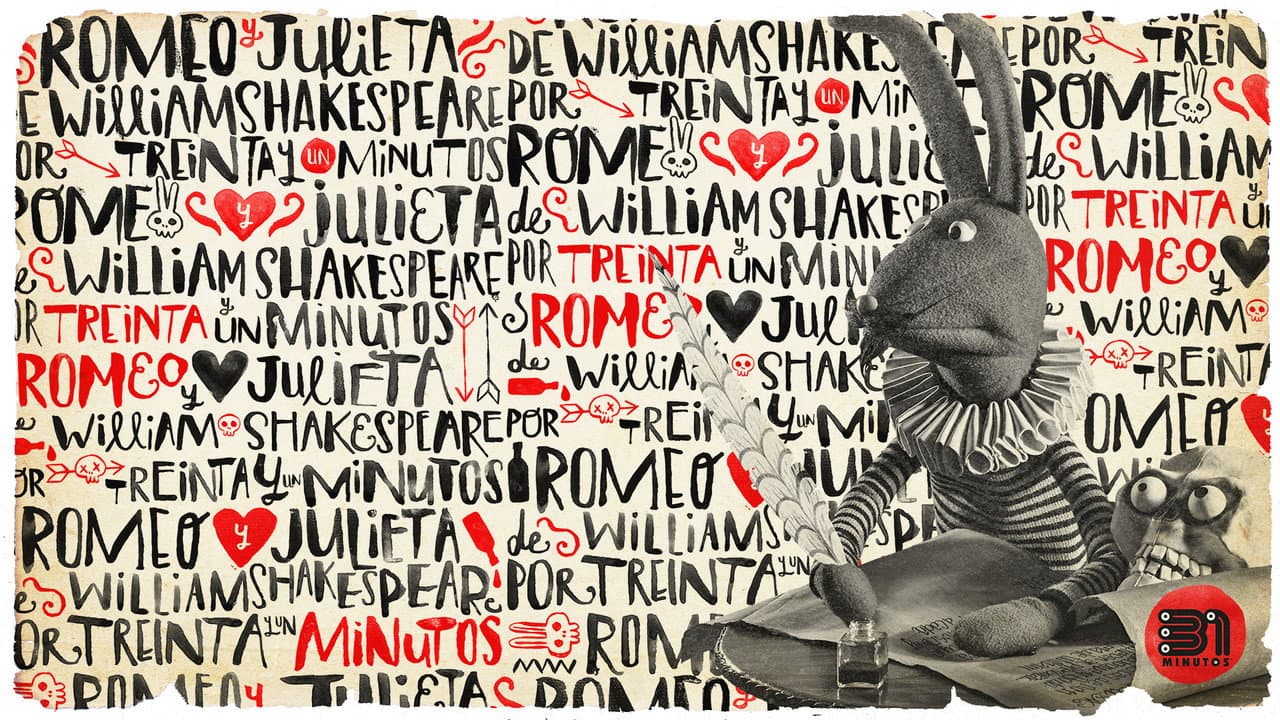 ROMEO y JULIETA DE WilliAM SHAKESPE POR TREIN
E WilliAM SHAKESPEARE POR TREINTA y UN MINUT ROME
OR TREINTA y UN MINUTOS ROME y JULIE de WILLIAM
ROME y JULIETA de WILLIAM SHAKESP POR TREINTA y U
e WILLIAM SHAKESPEARE POR TREINTA y UN MINU ROMEO y
OR TREINTA y UN MINUTOS ROME JUL WilliAM
ROMEO y JULIETA de WilliA SHAKE TREINT
WilliAM SHAKESPEARE POR TREI Y UN MI OMEO
OR TREINTA Y UN MINUTOS ROMEO JU Wi
ROMEO y JULIETA de WILLIAMS PE
e WILLIAM SHAKESPEARE POR TREINTA Y UN
OR TREINTA Y UN MINUTOS ROM
ROMEO y JULIETA ROMEO y
31
MINUTOS